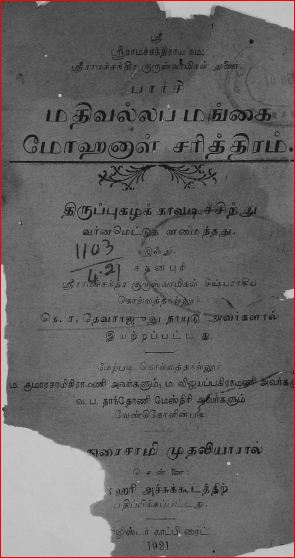 ஸ்ரீ
ஸ்ரீராமச்சந்திராய நம:
ஸ்ரீராமச்சந்திர குருஸ்வாமிகள் துணை.
பார்சி
மதிவல்லப மங்கை
மோஹனாள் சரித்திரம்.
திருப்புகழ்க் காவடிச்சிந்து
வர்னமெட்டுக் ளமைந்தது.
1103
4.21
இஃது
ஸ்ரீராமச்சந்திர குருஸ்வாமிகள்
கொல்லத்தகல்லூர்
கெ. ச. தேவராஜுலு நாயுடு அவர்களால்
இயற்றப்பட்டது,
மேற்படி கொல்லத்தகல்லூர்
ம. குமாரசாமிகிராமணி அவர்களும், ம. விஜயப்பகிராமணி அவர்களு
வ. ப. தாந்தோணி மேஸ்திரி அவர்களும்
வேண்டுகோளின்படி
துரைசாமி முதலியாரால்
சென்னை:
ஹரி அச்சுக்கூடத்திற்
பதிப்பிக்கப்பட்டது.
ஜிஸ்டர் காப்பி ரைட்
1921